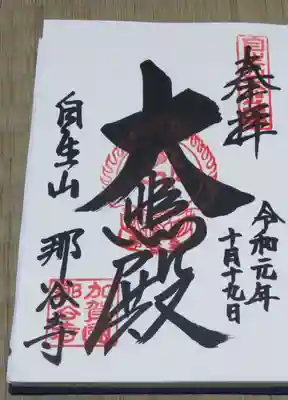 奉拝
令和元年
十月十九日
大悲殿
自生山 那谷寺
加賀國
那谷寺